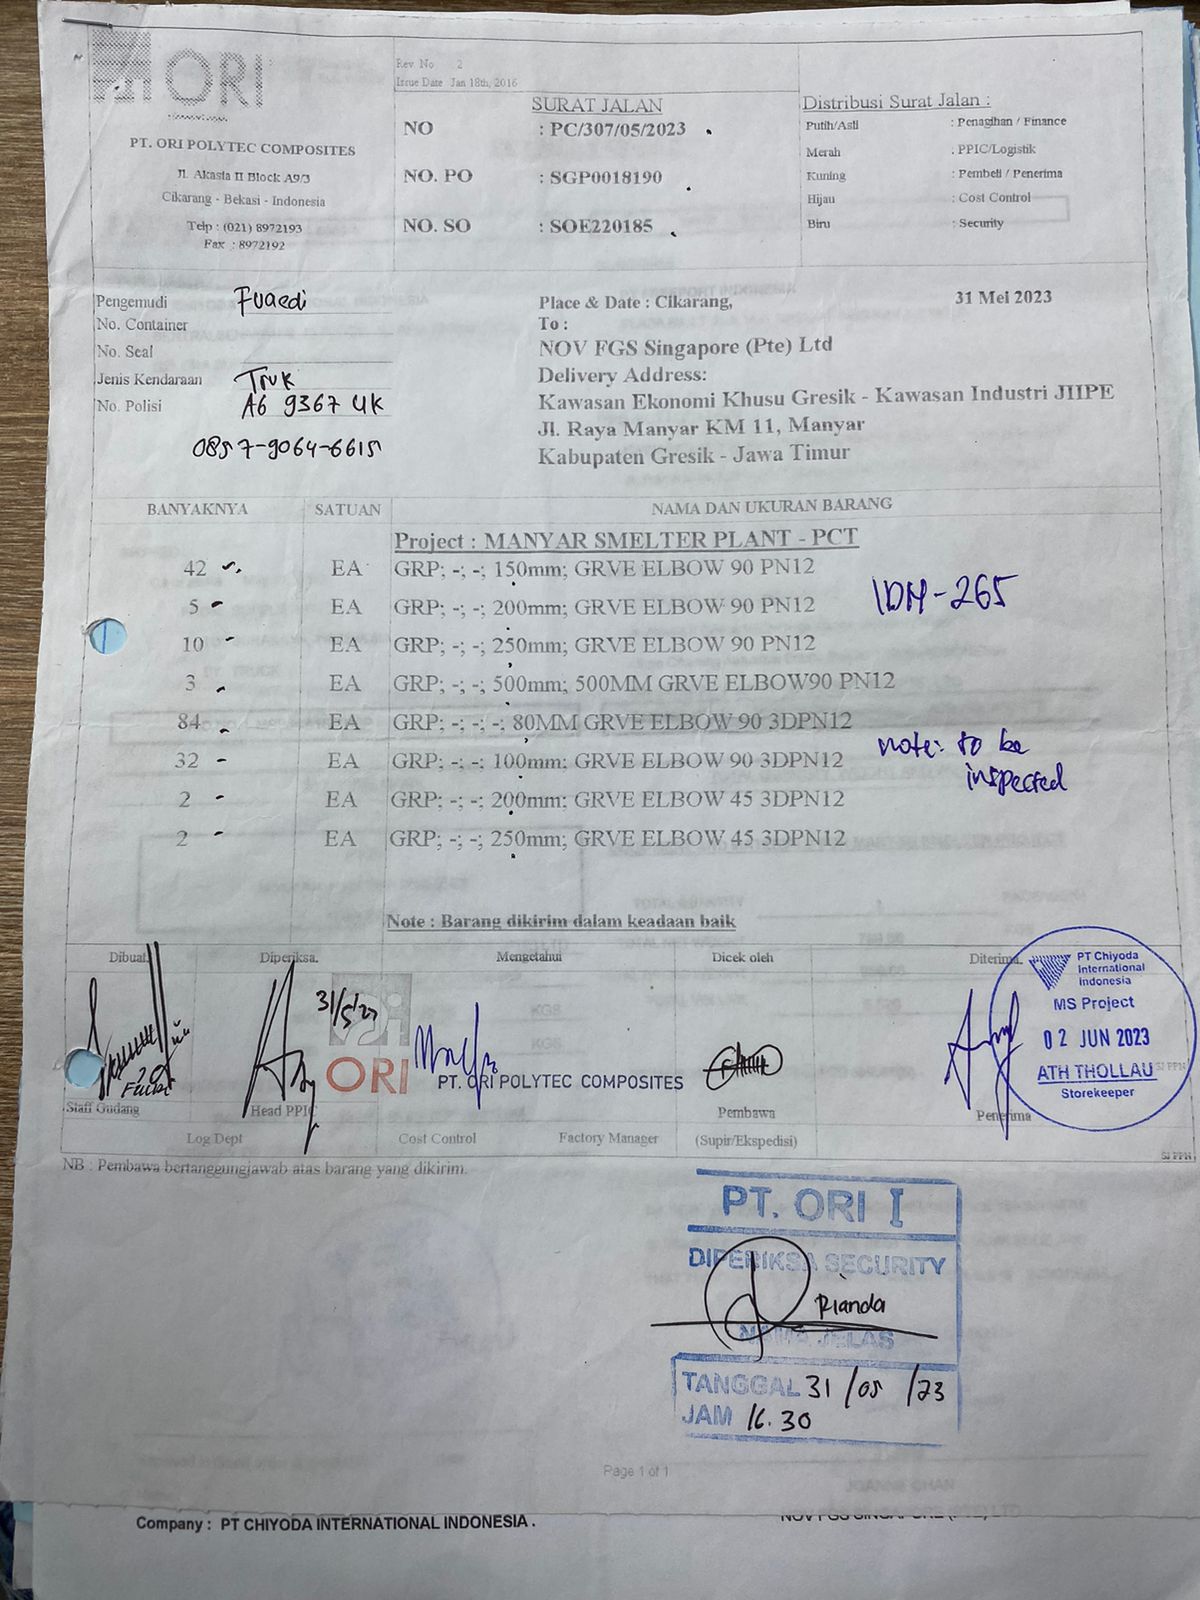 ORI
PT. ORI POLYTEC COMPOSITES
Jl. Akasia II Block A9/3
Cikarang - Bekasi - Indonesia
Telp : (021) 8972193
Fax : 8972192
Rev. No 2
Issue Date Jan 18th, 2016
SURAT JALAN
NO : PC/307/05/2023
NO. PO : SGP0018190
NO. SO : SOE220185
Distribusi Surat Jalan :
Putih/Asli : Penagihan / Finance
Merah : PPIC/Logistik
Kuning : Pembeli / Penerima
Hijau : Cost Control
Biru : Security
Pengemudi Fuaedi
No. Container
No. Seal
Jenis Kendaraan Truk
No. Polisi
9367 UK
0857-9064-6615
Place & Date : Cikarang, 31 Mei 2023
To :
NOV FGS Singapore (Pte) Ltd
Delivery Address:
Kawasan Ekonomi Khusu Gresik - Kawasan Industri JIIPE
Jl. Raya Manyar KM 11, Manyar
Kabupaten Gresik - Jawa Timur
BANYAKNYA SATUAN NAMA DAN UKURAN BARANG
Project : MANYAR SMELTER PLANT - PCT
42 EA GRP; -; -; 150mm; GRVE ELBOW 90 PN12
5 EA GRP; -; -; 200mm; GRVE ELBOW 90 PN12
10 EA GRP; -; -; 250mm; GRVE ELBOW 90 PN12
3 EA GRP; -; -; 500mm; 500MM GRVE ELBOW90 PN12
84 EA GRP; -; -; -; 80MM GRVE ELBOW 90 3DPN12
32 EA GRP; -; -; 100mm; GRVE ELBOW 90 3DPN12
2 EA GRP; -; -; 200mm; GRVE ELBOW 45 3DPN12
2 EA GRP; -; -; 250mm; GRVE ELBOW 45 3DPN12
IDM-265
note: to be
inspected
Note : Barang dikirim dalam keadaan baik
Dibuat. Diperiksa. Mengetahui Dicek oleh Diterima.
31/5'23
ORI
PT. ORI POLYTEC COMPOSITES
PT Chiyoda
International
Indonesia
MS Project
02 JUN 2023
ATH THOLLAU
Storekeeper
Staff Gudang Head PPIC Pembawa Penerima
Log Dept Cost Control Factory Manager (Supir/Ekspedisi)
SJ PPN
NB : Pembawa bertanggungjawab atas barang yang dikirim.
PT. ORI I
DIPERIKSA SECURITY
Rianda
NAMA JELAS
TANGGAL 31/05/23
JAM 16.30
Page 1 of 1
Company : PT CHIYODA INTERNATIONAL INDONESIA .